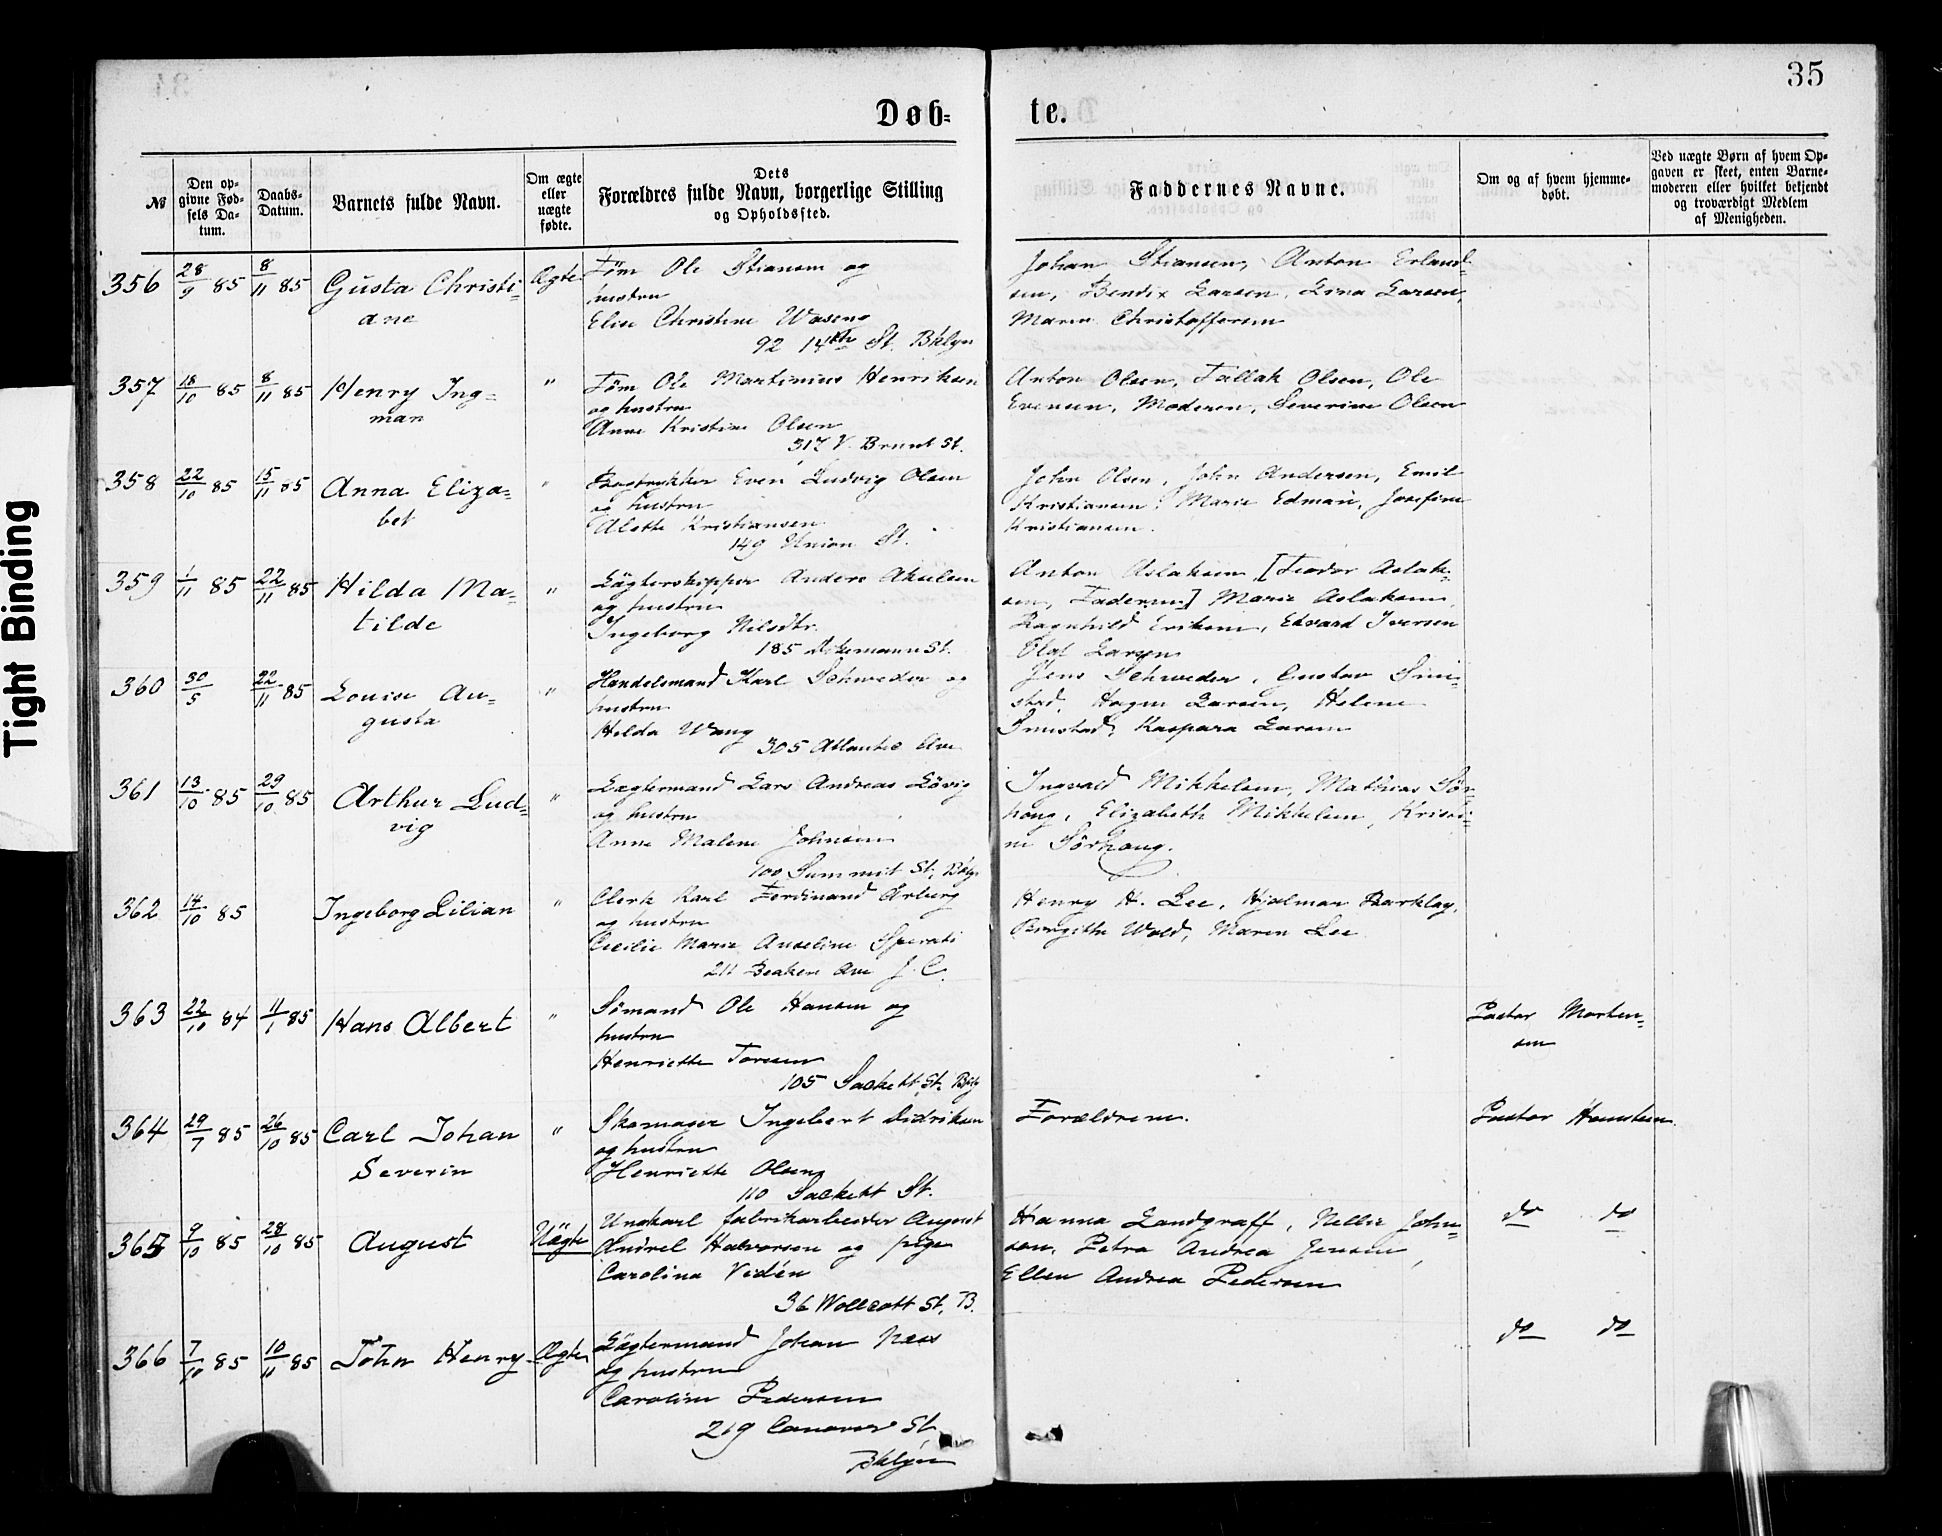 Tight Binding
35
Døb=
te.
№
Den op=
givne Fød=
sels Da=
tum.
Daabs=
Datum.
Barnets fulde Navn.
Om ægte
eller
uægte
fødte.
Dets
Forældres fulde Navn, borgerlige Stilling
og Opholdssted.
Faddernes Navne.
Om og af hvem hjemme=
døbt.
Ved uægte Børn af hvem Op=
gaven er skeet, enten Barne=
moderen eller hvilket bekjendt
og troværdigt Medlem
af Menigheden.
356 28/9 85 8/11 85 Gusta Christi= Ægte Töm Ole Stiansen og
ane hustru
Elise Christine Waseng
92 14th St. Bklyn
Johan Stiansen, Anton Erland=
sen, Bendix Larsen, Lina Larsen,
Maren Christoffersen
357 18/10 85 8/11 85 Henry Ing= " Töm Ole Martinius Henriksen
man og hustru
Anne Kristine Olsen
317 V. Brunt St.
Anton Olsen, Tallak Olsen, Ole
Evensen, Moderen, Severine Olsen
358 22/10 85 15/11 85 Anna Eliza= " Bogtrykker Even Ludvig Olsen
bet og hustru
Alethe Kristiansen
149 Union St.
John Olsen, John Andersen, Emil
Kristiansen, Marie Edman, Josefine
Kristiansen.
359 1/11 85 22/11 85 Hilda Ma= " Lägterskipper Anders
tilde og hustru
Ingeborg Nilsdtr.
185 Dikemann St.
Anton Aslaksen [Feodor Aslak=
sen, Faderen] Marie Aslaksen,
Ragnhild Eriksen, Edvard Iversen
Olaf Larsen
360 30/5 22/11 85 Louise Au= " Handelsmand Karl Schweder og
gusta hustru
Hilda Wang
305 Atlantic Ave
Jens Schweder, Gustav Smi=
stad, Hagen Larsen, Helene
Smistad, Kaspara Larsen
361 13/10 85 29/10 85 Arthur Lud= " Lægtermand Lars Andreas Lövig
vig og hustru
Anne Malene Johnsen
100 Summit St,
Ingvald Mikkelsen, Mathias Sör=
houg, Elizabeth Mikkelsen, Kristi=
ne Sörhoug.
362 14/10 85 Ingeborg Lilian " Clerk Karl Ferdinand Arburg
og hustru
Cecilie Marie Anseline Sperati
211 Beaken Ave J. C.
Henry H. Lee, Hjalmar Barklay,
Birgitte Wold, Maren Lee
363 22/10 84 11/1 85 Hans Albert " Sömand Ole Hansen og
hustru
Henriette Toresen
105 Sackett St.
Pastor Morten=
sen
364 29/7 85 26/10 85 Carl Johan " Skomager Ingebert Didriksen
Severin og hustru
Henriette Olsen
110 Sackett St.
Forældrene. Pastor Hemstein.
365 9/10 85 28/10 85 August Uägte Ungkarl fabrikarbeider August
Andrel Halvorsen og pige
Carolina Vidén
36 Wollcott St, B.
Hanna Landgraff, Nellie John=
son, Petra Andrea Jensen,
Ellen Andrea Pedersen
do do
366 7/10 85 10/11 85 John Henry Ægte Lägtermand Johan Næss
og hustru
Caroline Pedersen
219 Conover St,
Bklyn
do do